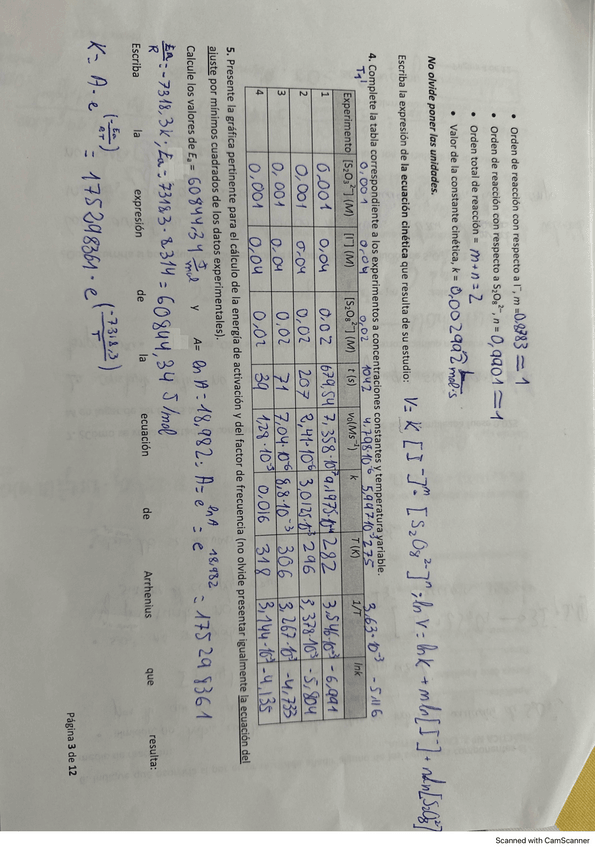 • Orden de reacción con respecto a I⁻, m = 0,8783 ≃ 1
• Orden de reacción con respecto a S₂O₈²⁻, n = 0,9901 ≃ 1
• Orden total de reacción = m+n = 2
• Valor de la constante cinética, k = 0,002992 L/mol·s
No olvide poner las unidades.
Escriba la expresión de la ecuación cinética que resulta de su estudio: V = K [I⁻]ᵐ · [S₂O₈²⁻]ⁿ ; ln V = ln K + m ln[I⁻] + n ln[S₂O₈²⁻]
4. Complete la tabla correspondiente a los experimentos a concentraciones constantes y temperatura variable.
0,001 0,04 0,02 1042 4,798·10⁻⁶ 5,997·10⁻³ 275 3,63·10⁻³ -5,116
Experimento [S₂O₃²⁻] (M) [I⁻] (M) [S₂O₈²⁻] (M) t (s) v₀(Ms⁻¹) k T (K) 1/T lnk
1 0,001 0,04 0,02 679,54 7,358·10⁻⁷ 9,1975·10⁻⁴ 282 3,546·10⁻³ -6,991
2 0,001 0,04 0,02 207 2,41·10⁻⁶ 3,0125·10⁻³ 296 3,378·10⁻³ -5,804
3 0,001 0,04 0,02 71 7,04·10⁻⁶ 8,8·10⁻³ 306 3,267·10⁻³ -4,733
4 0,001 0,04 0,02 39 1,28·10⁻⁵ 0,016 318 3,144·10⁻³ -4,135
5. Presente la gráfica pertinente para el cálculo de la energía de activación y del factor de frecuencia (no olvide presentar igualmente la ecuación del
ajuste por mínimos cuadrados de los datos experimentales).
Calcule los valores de Eₐ = 60844,34 J/mol y A= ln A = 18,982; A = e^(ln A) = e^(18,982) = 175298361
Ea/R = -7318,3 K; Ea = 7318,3 · 8,314 = 60844,34 J/mol
Escriba la expresión de la ecuación de Arrhenius que resulta:
K = A · e^(-Ea/RT) = 175298361 · e^(-7318,3/T)
Página 3 de 12
Scanned with CamScanner